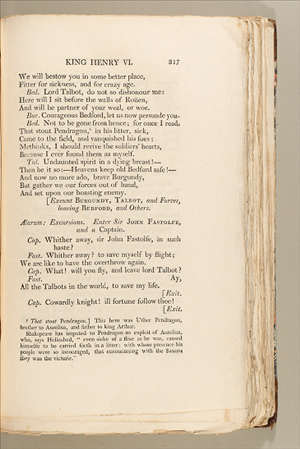 KING HENRY VI. 327
We will bestow you in some better place,
Fitter for sickness, and for crazy age.
Bed. Lord Talbot, do not so dishonour me:
Here will I sit before the walls of Roüen,
And will be partner of your weal, or woe.
Bur. Courageous Bedford, let us now persuade you.
Bed. Not to be gone from hence; for once I read,
That stout Pendragon,² in his litter, sick,
Came to the field, and vanquished his foes:
Methinks, I should revive the soldiers' hearts,
Because I ever found them as myself.
Tal. Undaunted spirit in a dying breast!—
Then be it so:—Heavens keep old Bedford safe!—
And now no more ado, brave Burgundy,
But gather we our forces out of hand,
And set upon our boasting enemy.
[Exeunt Burgundy, Talbot, and Forces,
leaving Bedford, and Others.
Alarum: Excursions. Enter Sir John Fastolfe,
and a Captain.
Cap. Whither away, sir John Fastolfe, in such
haste?
Fast. Whither away? to save myself by flight;
We are like to have the overthrow again.
Cap. What! will you fly, and leave lord Talbot?
Fast. Ay,
All the Talbots in the world, to save my life.
[Exit.
Cap. Cowardly knight! ill fortune follow thee!
[Exit.
² That stout Pendragon.] This hero was Uther Pendragon,
brother to Aurelius, and father to king Arthur.
Shakspeare has imputed to Pendragon an exploit of Aurelius,
who, says Holinshed, " even sicke of a flixe as he was, caused
himselfe to be carried forth in a litter: with whose presence his
people were so incouraged, that encountering with the Saxons
they wan the victorie."